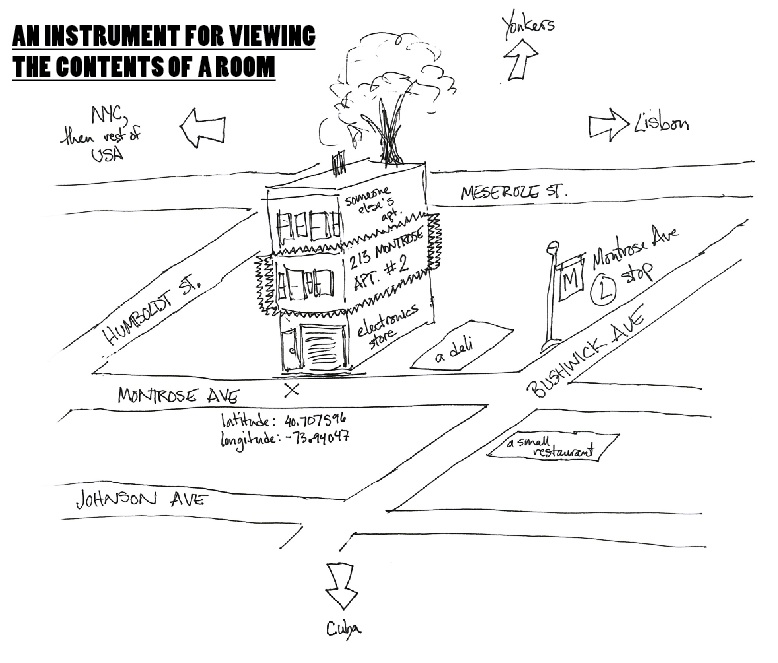 AN INSTRUMENT FOR VIEWING
THE CONTENTS OF A ROOM
Yonkers
NYC,
then rest of
USA
Lisbon
MESEROLE ST.
someone
else's
apt.
213 MONTROSE
APT. #2
electronics
store
HUMBOLDT ST.
M
Montrose Ave
L stop
a deli
BUSHWICK AVE
MONTROSE AVE
X
latitude: 40.707596
longitude: -73.94047
a small
restaurant
JOHNSON AVE
Cuba